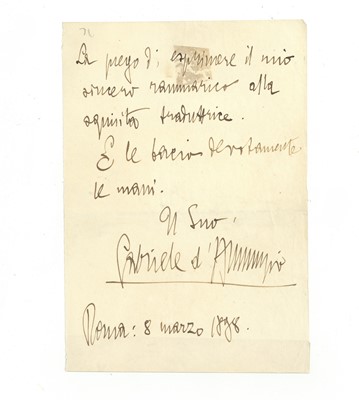 71
La prego di esprimere il mio
sincero rammarico alla
squisita traduttrice.
E le bacio devotamente
le mani.
Il Suo
Gabriele d'Annunzio
Roma: 8 marzo 1898.